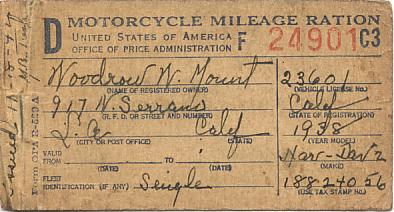 D MOTORCYCLE MILEAGE RATION
UNITED STATES OF AMERICA
OFFICE OF PRICE ADMINISTRATION F 24901 C3
Woodrow W. Mount 23601
(NAME OF REGISTERED OWNER) (VEHICLE LICENSE NO.)
917 N. Serrano Calif
(R. F. D. OR STREET AND NUMBER) (STATE OF REGISTRATION)
L.A Calif 1938
(CITY OR POST OFFICE) (STATE) (YEAR MODEL)
VALID FROM TO Har-Dav 2
(DATE) (DATE) (MAKE)
FLEET IDENTIFICATION (IF ANY) Single 188 240 56
(USE TAX STAMP NO.)
Form OPA R-529A
Issued